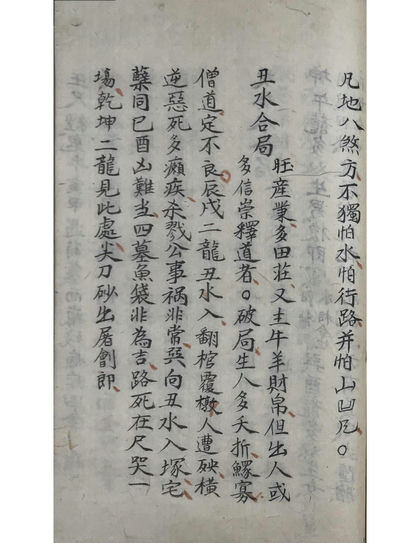 凡地八煞方不獨怕水怕行路并怕山凹風。
丑水合局
旺産業多田莊又主牛羊財帛但出人或
多信崇釋道者。破局生人多夭折鰥寡
僧道定不良辰戌二龍丑水入翻棺覆槨人遭殃橫
逆惡死多癩疾杀戮公事禍非常巽向丑水入塚宅
蘖同巳酉凶難当四墓魚袋非為吉路死在尺哭一
塲乾坤二龍見此處尖刀砂出屠創郎